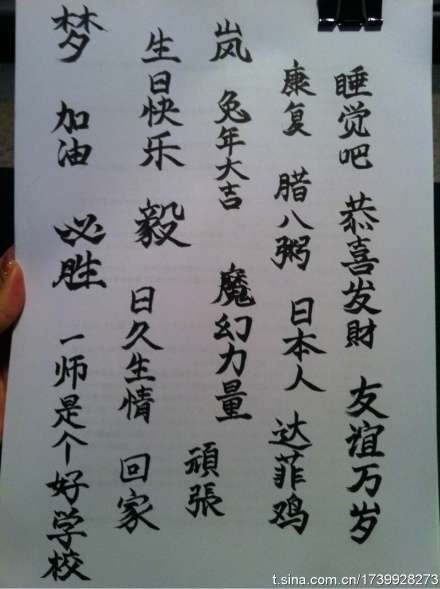 睡觉吧 恭喜发财 友谊万岁
康复 腊八粥 日本人 达菲鸡
岚 兔年大吉 魔幻力量 頑張
生日快乐 毅 日久生情 回家
梦 加油 必胜 一师是个好学校
t.sina.com.cn/1739928273